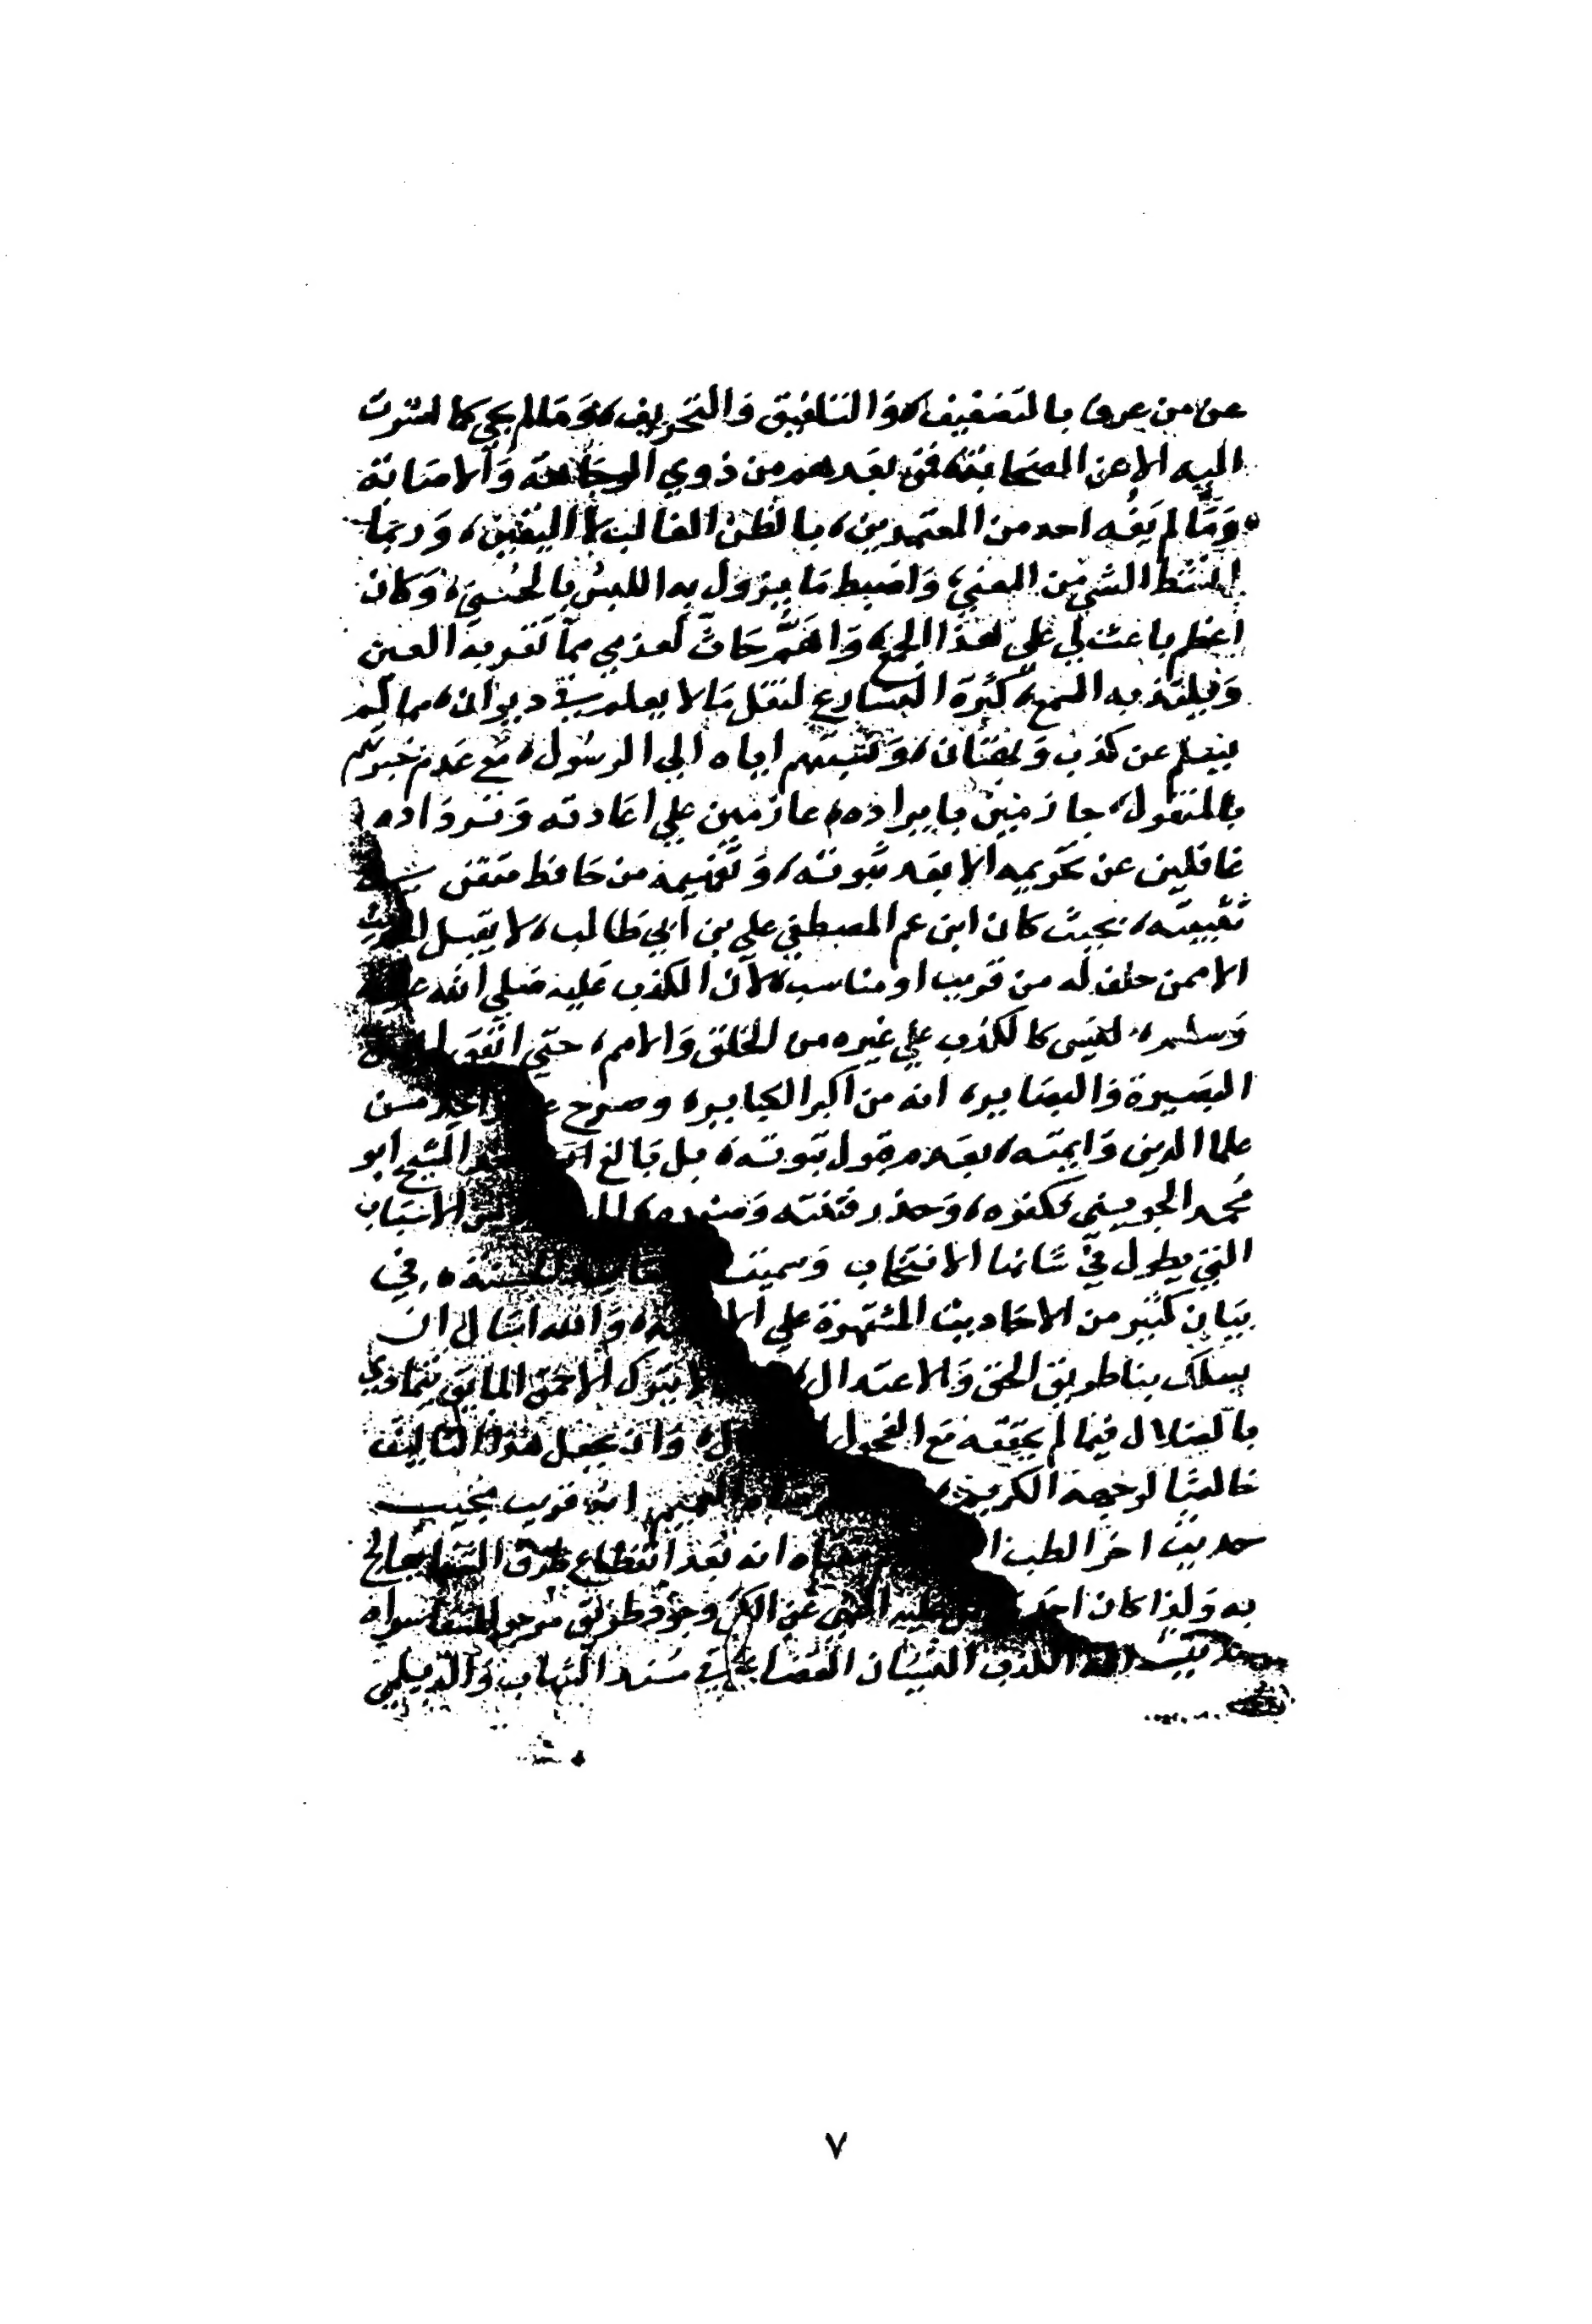 عن من عرف بالتضعيف، والتلفيق والتحريف، وما لم يجي كما اشرت
اليه الا عن الصحابة، فمن بعدهم من ذوي الوجاهة والامانة
وما لم يفه احد من المعتمدين، بالظن الغالب لا اليقين، وربما
انشط الشي من المعني، واضبط ما يزول به اللبس بالحسني، وكان
اعظم باعث لي علي هذا الجمع، واهم حاث لعزمي مما تقر به العين
ويلتذ به السمع، كثرة التسارع لنقل ما لا يعلم في ديوان، مما لم
يسلم عن كذب وبهتان، ونسبتهم اياه الي الرسول، مع عدم خبرتهم
بالمنقول، جازمين بايراده، عازمين علي اعادته وترداده
غافلين عن تحريمه الا بعد ثبوته، وتفهيمه من حافظ متقن
تثبيته، بحيث كان ابن عم المصطفي علي بن ابي طالب، لا يقبل الحديث
الا ممن حلف له من قريب او مناسب، لان الكذب عليه صلي الله
وسلم، ليس كالكذب علي غيره من الخلق والامم، حتي اتفق
البصيرة والبصاير، انه من اكبر الكباير، وصرح واحد من
علما الدين وايمته، بعدم قبول توبته، بل بالغ الشيخ ابو
محمد الجويني فكفره، وحذر فتنته وضرره، الاسباب
التي يطول في شانها الانتخاب وسميته الحسنة، في
بيان كثير من الاحاديث المشتهرة علي والله اسال ان
يسلك بنا طريق الحق والاعتدال، يترك الاحمق المايق يتمادي
بالضلال فيما لم يحققه مع الفحول وان يجعل هذا التاليف
خالصا لوجهه الكريم، انه قريب مجيب
حديث اخر الطب انه بعد انقطاع طرق الشفا يعالج
به ولذا كان احد عليه النهي عن الكي وجود طريق مرجو للشفا سواه
الكذب النسيان القضاعي في مسند الشهاب والديلمي
٧